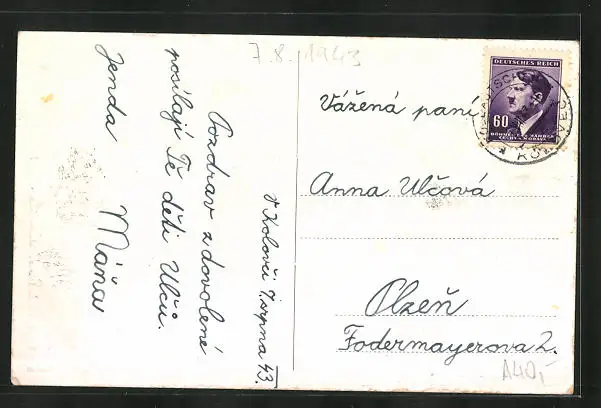 7.8.1943
V Kolovči 7. srpna 43.
Pozdrav z dovolené
posílají Tě děti Ulčů.
Jenda Máňa
DEUTSCHES REICH
60
BÖHMEN UND MÄHREN
ČECHY A MORAVA
Vážená paní
Anna Ulčová
Plzeň
Fodermayerova 2.
A40,-